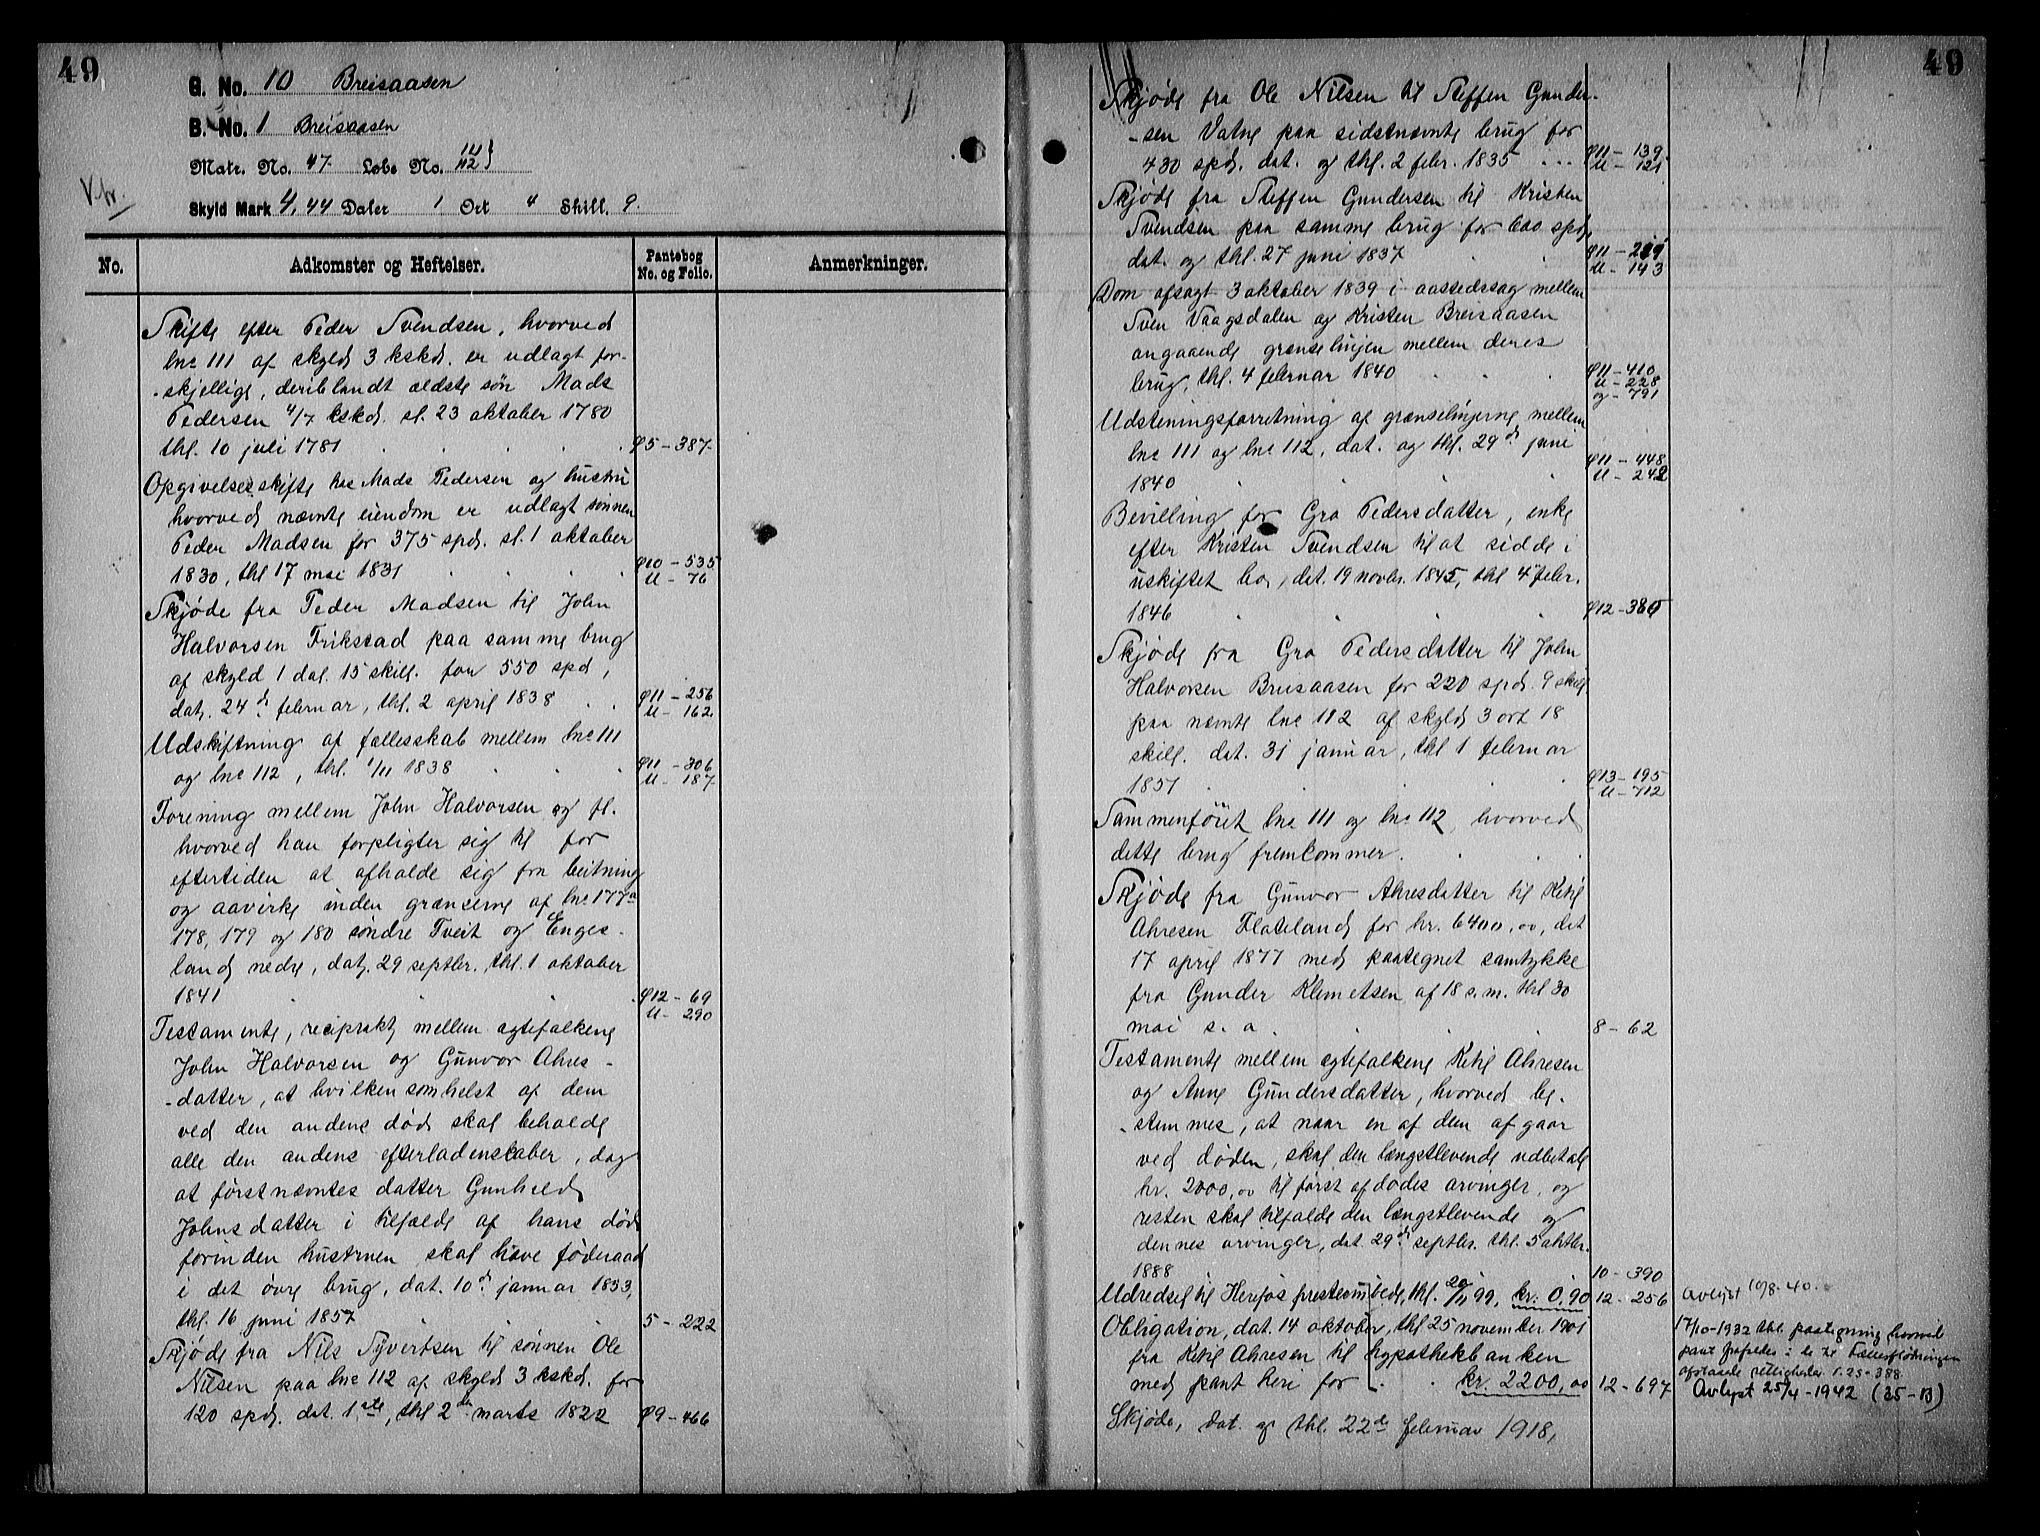 49
G. No. 10 Breisaasen
B. No. 1 Breisaasen
Matr. No. 47. Løbe No. 111 112}
Skyld Mark 4,44 Daler 1 Ort 4 Skill. 9.
No.
Adkomster og Heftelser.
Pantebog No. og Folio.
Anmerkninger.
Skifte efter Peder Svendsen, hvorved
lnr 111 af skyld 3 kskd. er udlagt for-
-skjellige, deriblandt ældste søn Mads
Pedersen 4/7 kskd. sl. 23 oktober 1780
thl. 10 juli 1781 . . . . φ5-387.
Opgivelsesskifte hos Mads Pedersen og hustru
hvorved nævnte eiendom er udlagt sønnen
Peder Madsen for 375 spd. sl. 1 oktober
1830, thl 17 mai 1831 . . . . φ10-535
U-76
Skjøde fra Peder Madsen til John
Halvorsen Frikstad paa samme brug
af skyld 1 dal. 15 skill. for 550 spd,
dat. 24 d. februar, thl. 2 april 1838 . . φ11-256
U-162
Udskiftning af fællesskab mellem lnr 111
og lnr 112, thl. 1/11 1838 . . . φ11-306
U-187
Forening mellem John Halvorsen og fl.
hvorved han forpligter sig til for
eftertiden at afholde sig fra beitning
og aavirke inden grænserne af lnr 177a
178, 179 og 180 søndre Tveit og Enges-
land nedre, dat. 29 septbr. thl. 1 oktober
1841 . . . . φ12-69
U-290
Testamente, reciprokt mellem egtefolkene
John Halvorsen og Gunvor Ahres-
-datter, at hvilkensomhelst af dem
ved den andens død skal beholde
alle den andens efterladenskaber, dog
at førstnævntes datter Gunhild
Johnsdatter i tilfælde af hans død
forinden hustruen skal have føderaad
i det øvre brug, dat. 10 d. januar 1853,
thl. 16 juni 1857 . . . 5-222
Skjøde fra Nils Syvertsen til sønnen Ole
Nilsen paa lnr 112 af skyld 3 kskd. for
120 spd. dat. 1ste, thl 2 den marts 1822 φ9-466
49
Skjøde fra Ole Nilsen til Steffen Gunder-
-sen Vatne paa sidstnævnte brug for
430 spd. dat. og thl. 2 febr. 1835 ... φ11-139.
U-121
Skjøde fra Steffen Gundersen til Kristen
Svendsen paa samme brug for 600 spd,
dat. og thl. 27 juni 1837 . . φ11-219
U-143
Dom afsagt 3 oktober 1839 i aastedssag mellem
Sven Vaagsdalen og Kristen Breisaasen
angaaende grænselinjen mellem deres
brug, thl. 4 februar 1840 . . . φ11-410
U-228
og-791
Udsteningsforretning af grænselinjerne mellem
lnr 111 og lnr 112, dat. og thl. 29 d. juni
1840 . . . . φ11-448
U-242
Bevilling for Gro Pedersdatter, enke
efter Kristen Svendsen til at sidde i
uskiftet bo, dat. 19 novbr. 1845, thl 4 febr.
1846 . . . . φ12-380
Skjøde fra Gro Pedersdatter til John
Halvorsen Breisaasen for 220 spd. 9 skill
paa nævnte lnr 112 af skyld 3 ort 18
skill. dat. 31 januar, thl 1 februar
1851 . . . . φ13-195
U-712
Sammenføiet lnr 111 og lnr 112, hvorved
dette brug fremkommer. . . .
Skjøde fra Gunvor Ahresdatter til Ketil
Ahresen Flateland for kr. 6400,00, dat
17 april 1877 med paategnet samtykke
fra Gunder Klemetsen af 18 s.m. thl 30
mai s. a . . . . 8-62
Testamente mellem egtefolkene Ketil Ahresen
og Anne Gundersdatter, hvorved be-
-stemmes, at naar en af dem afgaar
ved døden, skal den længstlevende udbetale
kr. 2000,00 til først afdødes arvinger, og
resten skal tilfalde den længstlevende og
dennes arvinger, dat. 29 d. septbr. thl. 5 oktbr.
1888 10-390
Udredsel til Hereføs presteembede, thl. 20/11 99, kr. 0,90 12-256 Avlyst 10/8-40.
Obligation, dat. 14 oktober, thl 25 november 1901
fra Ketil Ahresen til hypothekbanken
med pant heri for . . kr. 2200,00 12-697
17/10-1932 thl. paategning hvorved
pant frafaldes i de til Fællesfløtningen
afstaaede rettigheder 5.25-388
Avlyst 25/4-1942 (35-13)
Skjøde, dat. og thl. 22de februar 1918,